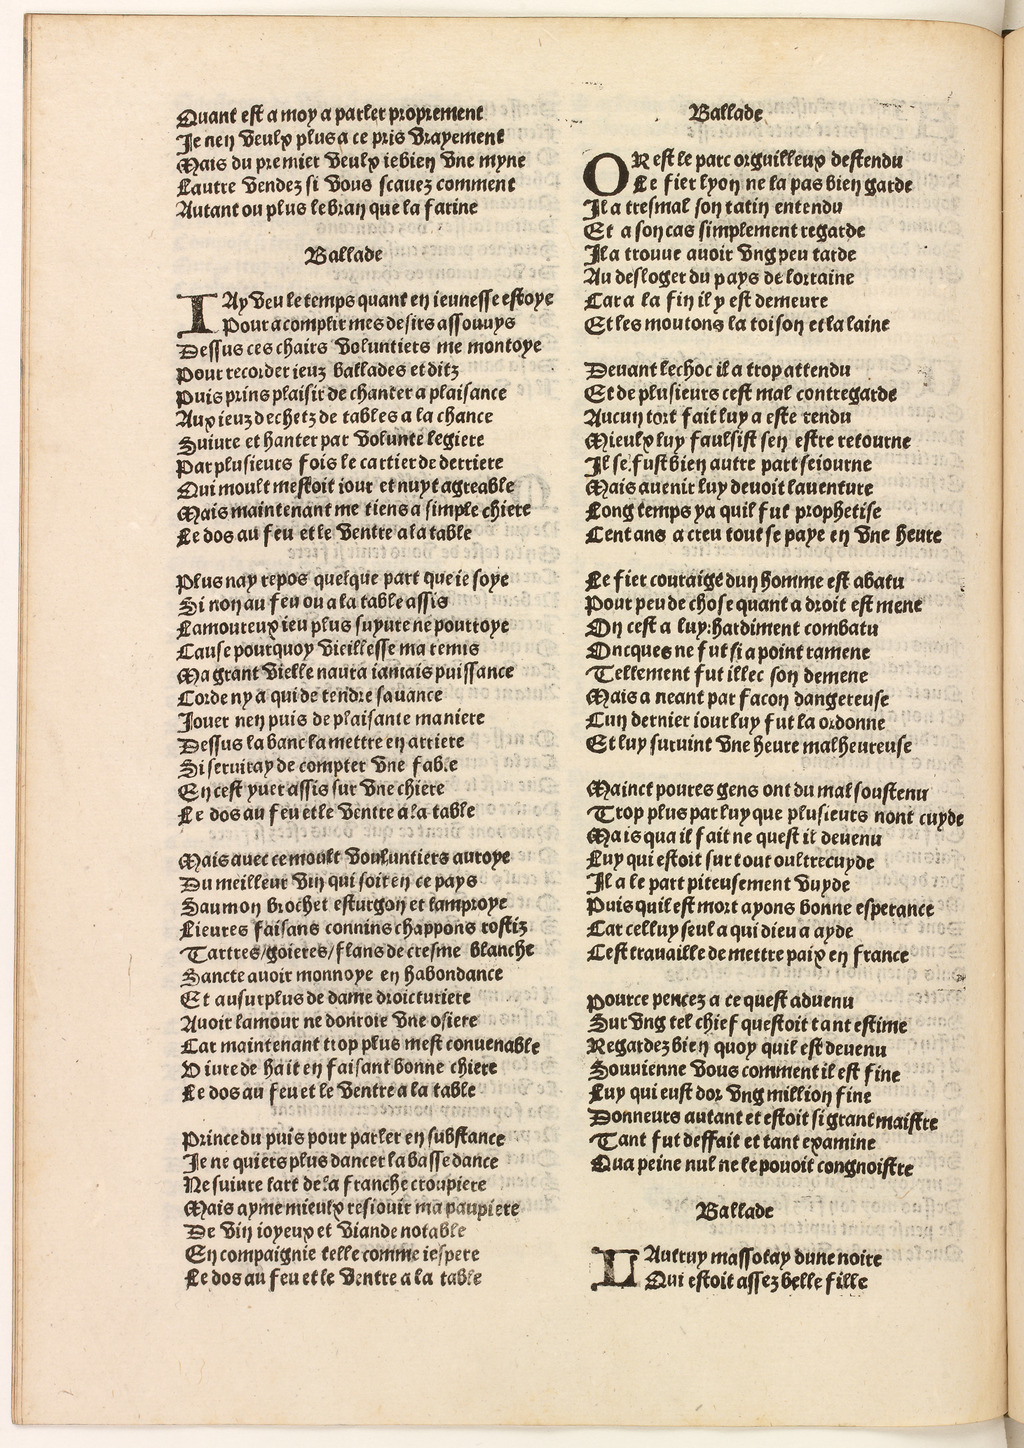 Quant est a moy a parler proprement
Je nen veulx plus a ce pris vrayement
Mais du premier veulx ie bien vne myne
Lautre vendez si vous scauez comment
Autant ou plus le bran que la farine
Ballade
IAy veu le temps quant en ieunesse estoye
Pour acomplir mes desirs assouuys
Dessus ces chairs voluntiers me montoye
Pour recorder ieuz ballades et ditz
Puis prins plaisir de chanter a plaisance
Aux ieuz dechetz de tables a la chance
Suiure et hanter par volunte legiere
Par plusieurs fois le cartier de derriere
Qui moult mestoit iour et nuyt agreable
Mais maintenant me tiens a simple chiere
Le dos au feu et le ventre a la table
Plus nay repos quelque part que ie soye
Si non au feu ou a la table assis
Lamoureux ieu plus suyure ne pourroye
Cause pourquoy vieillesse ma remis
Ma grant vielle naura iamais puissance
Corde ny a qui de tendre sauance
Jouer nen puis de plaisante maniere
Dessus la banc la mettre en arriere
Si seruiray de compter vne fable
En cest yuer assis sur vne chiere
Le dos au feu et le ventre a la table
Mais auec ce moult vouluntiers auroye
Du meilleur vin qui soit en ce pays
Saumon brochet esturgon et lamproye
Lieures faisans connins chappons rostiz
Tartres/goieres/flans de cresme blanche
Sancte auoir monnoye en habondance
Et au surplus de dame droicturiere
Auoir lamour ne donroie vne osiere
Car maintenant trop plus mest conuenable
Viure de hait en faisant bonne chiere
Le dos au feu et le ventre a la table
Prince du puis pour parler en substance
Je ne quiers plus dancer la basse dance
Ne suiure lart de la franche croupiere
Mais ayme mieulx resiouir ma paupiere
De vin ioyeux et viande notable
En compaignie telle comme iespere
Le dos au feu et le ventre a la table
Ballade
OR est le parc orguilleux destendu
Le fier lyon ne la pas bien garde
Il a tresmal son tatin entendu
Et a son cas simplement regarde
Il a trouue auoir vng peu tarde
Au desloger du pays de lorraine
Car a la fin il y est demeure
Et les moutons la toison et la laine
Deuant lechoc il a trop attendu
Et de plusieurs cest mal contregarde
Aucun tort fait luy a este rendu
Mieulx luy faulsist sen estre retourne
Il se fust bien autre part seiourne
Mais auenir luy deuoit lauenture
Long temps ya quil fut prophetise
Cent ans a creu tout se paye en vne heure
Le fier couraige dun homme est abatu
Pour peu de chose quant a droit est mene
On cest a luy:hardiment combatu
Oncques ne fut si a point ramene
Tellement fut illec son demene
Mais a neant par facon dangereuse
Lun dernier iour luy fut la ordonne
Et luy suruint vne heure malheureuse
Mainct poures gens ont du mal soustenu
Trop plus par luy que plusieurs nont cuyde
Mais qua il fait ne quest il deuenu
Luy qui estoit sur tout oultrecuyde
Il a le part piteusement vuyde
Puis quil est mort ayons bonne esperance
Car celluy seul a qui dieu a ayde
Cest trauaille de mettre paix en france
Pource pencez a ce quest aduenu
Sur vng tel chief questoit tant estime
Regardez bien quoy quil est deuenu
Souuienne vous comment il est fine
Luy qui eust dor vng million fine
Donneurs autant et estoit si grant maistre
Tant fut deffait et tant examine
Qua peine nul ne le pouoit congnoistre
Ballade
LAutruy massotay dune noire
Qui estoit assez belle fille